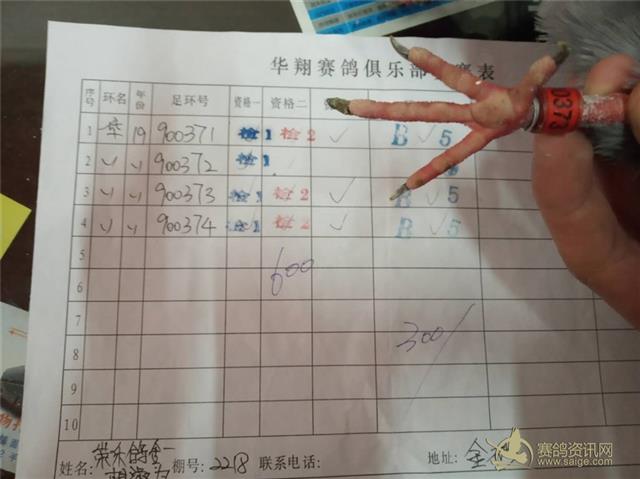 华翔赛鸽俱乐部 赛表
序号 环名 年份 足环号 资格一 资格二
1 华 19 900371 检1 检2 ✓ B ✓ 5
2 〃 〃 900372 检1
3 〃 〃 900373 检1 检2 ✓ B 5
4 〃 〃 900374 检1 检2 ✓ B ✓ 5
5
6 600
7
8 300
9
10
姓名: 棚号: 2218 联系电话: 地址: 金
0373
赛鸽资讯网
www.saige.com